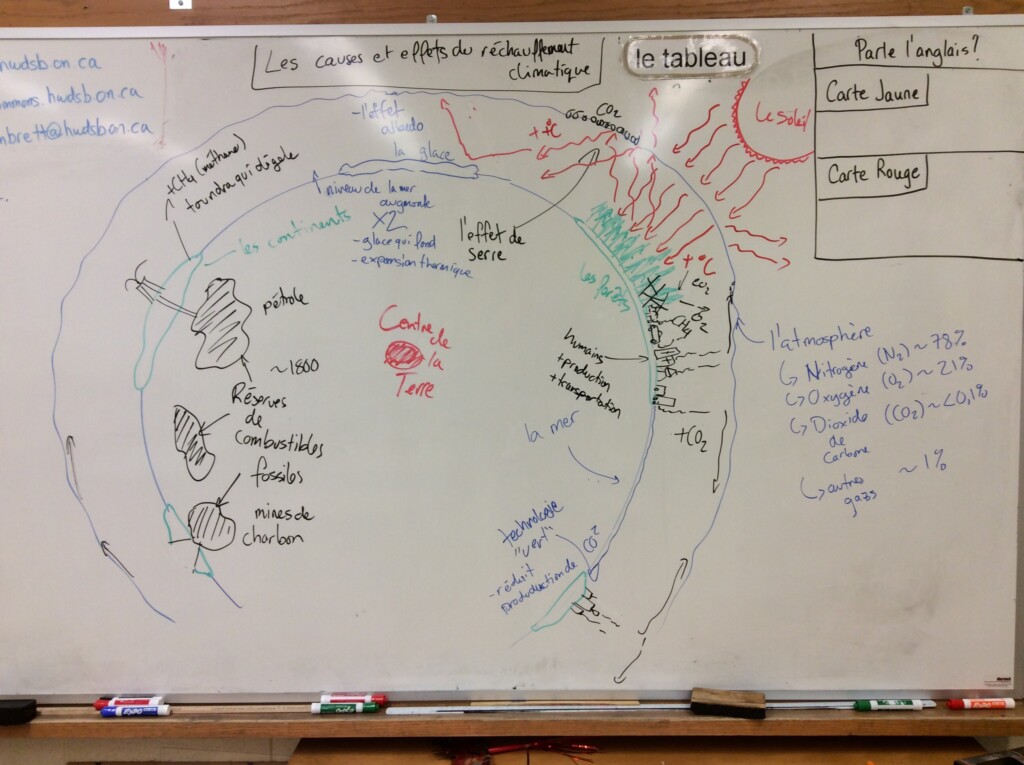 hwdsb.on.ca
commons.hwdsb.on.ca
mbrett@hwdsb.on.ca
Les causes et effets du réchauffement
climatique
le tableau
Parle l'anglais?
Carte Jaune
Carte Rouge
Le soleil
CO2
++°C
-l'effet
albedo
la glace
niveau de la mer
augmente
X2
-glace qui fond
-expansion thermique
+CH4 (méthane)
toundra qui dégèle
les continents
l'effet de
serre
les forêts
+°C
CO2
CO2
CH4
pétrole
~1800
Réserves
de
combustibles
fossiles
mines de
charbon
Centre de
la
Terre
humains
+production
+transportation
+CO2
la mer
technologie
"vert"
-réduit
production de CO2
l'atmosphère
↳ Nitrogène (N2) ~ 78%
↳ Oxygène (O2) ~ 21%
↳ Dioxide (CO2) ~ <0,1%
de
Carbone
↳ autres ~ 1%
gazs
EXPO
EXPO